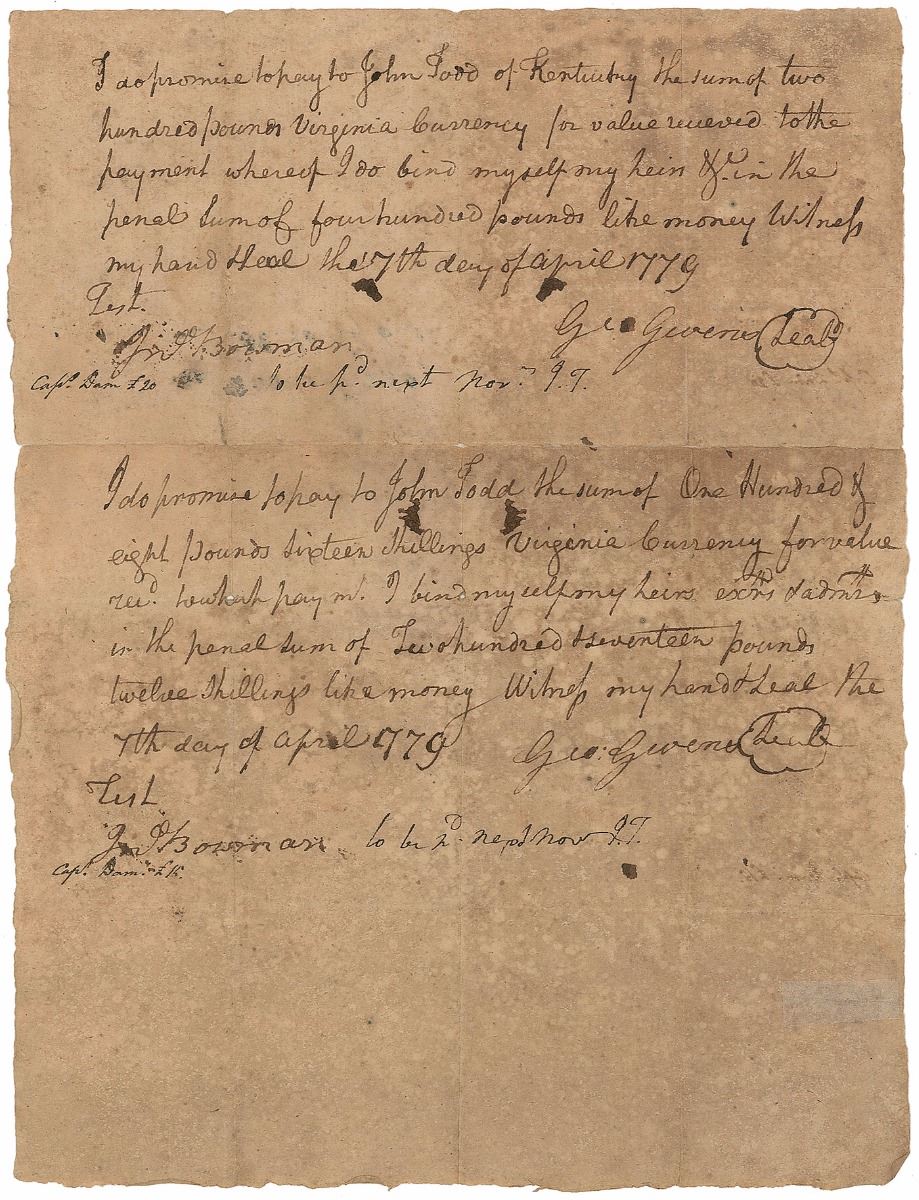 I do promise to pay to John Todd of Kentucky the sum of two
hundred pounds Virginia Currency for value recieved to the
payment whereof I do bind myself my heirs &c. in the
penal Sum of four hundred pounds like money Witness
my hand & Seal the 7th day of april 1779
Test.
Geo Givens Seal
Jno Bowman
Capt. Dam. £20 to be pd. next Novr. J.T.
I do promise to pay to John Todd the sum of One Hundred &
eight pounds Sixteen Shillings Virginia Currency for value
recd. to which paymt. I bind myself my heirs exrs & admrs
in the penal sum of Two hundred & seventeen pounds
twelve Shillings like money Witness my hand & Seal the
7th day of april 1779
Geo: Givens Seal
Test
Jno Bowman to be pd. next Novr J.T.
Capt. Dam. £15.